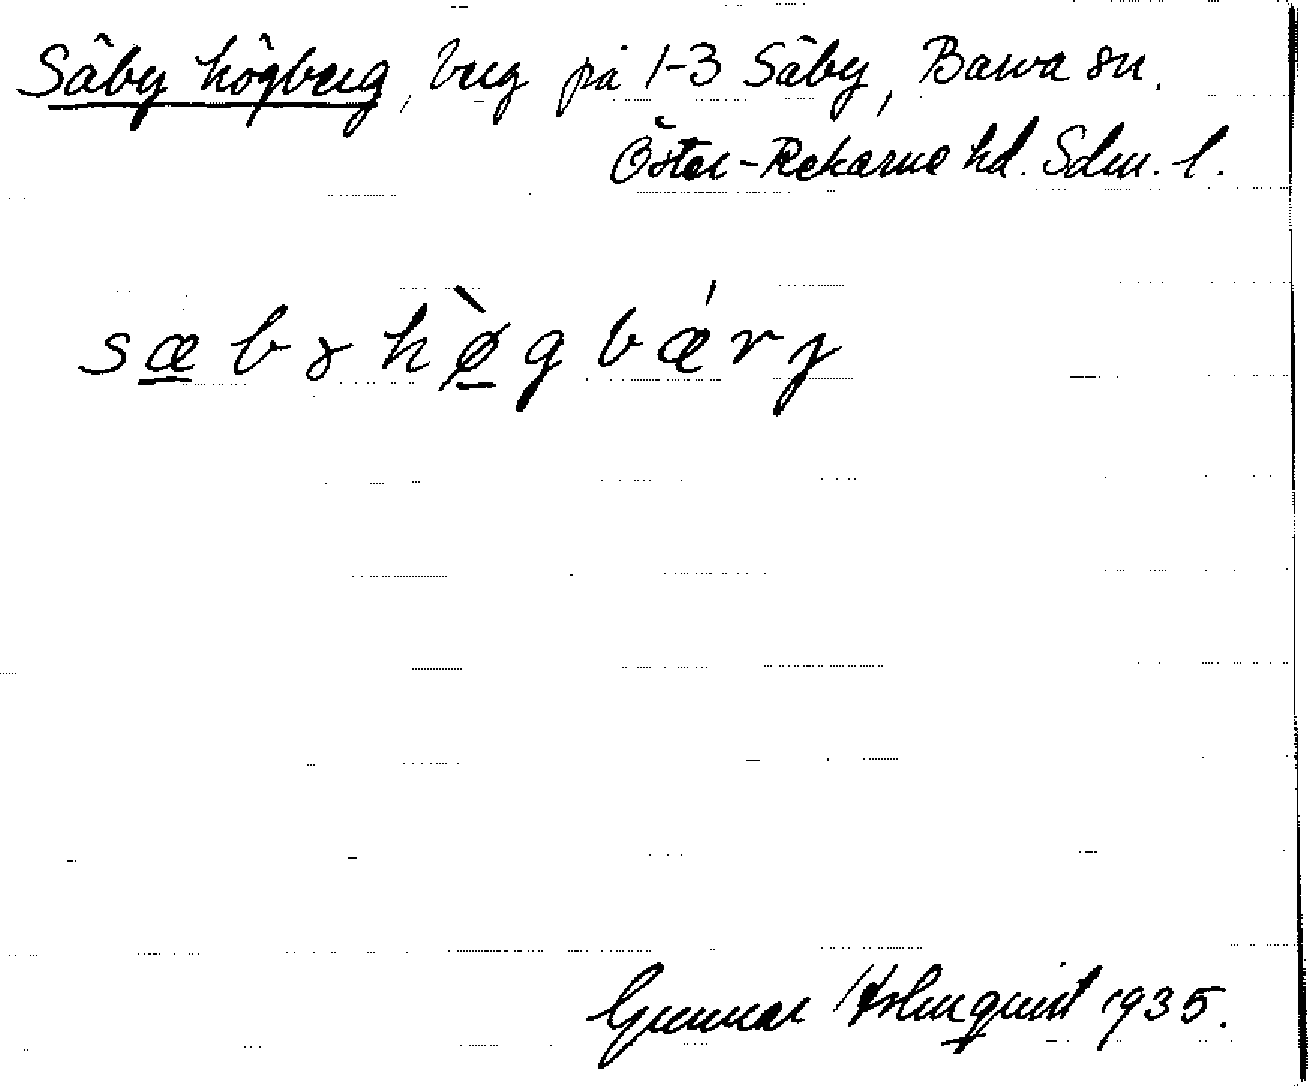 Säby högberg, berg på 1-3 Säby, Barva sn.
Öster-Rekarne hd. Sdm. l.
sæbyhø̀gbǽrj
Gunnar Holmquist 1935.